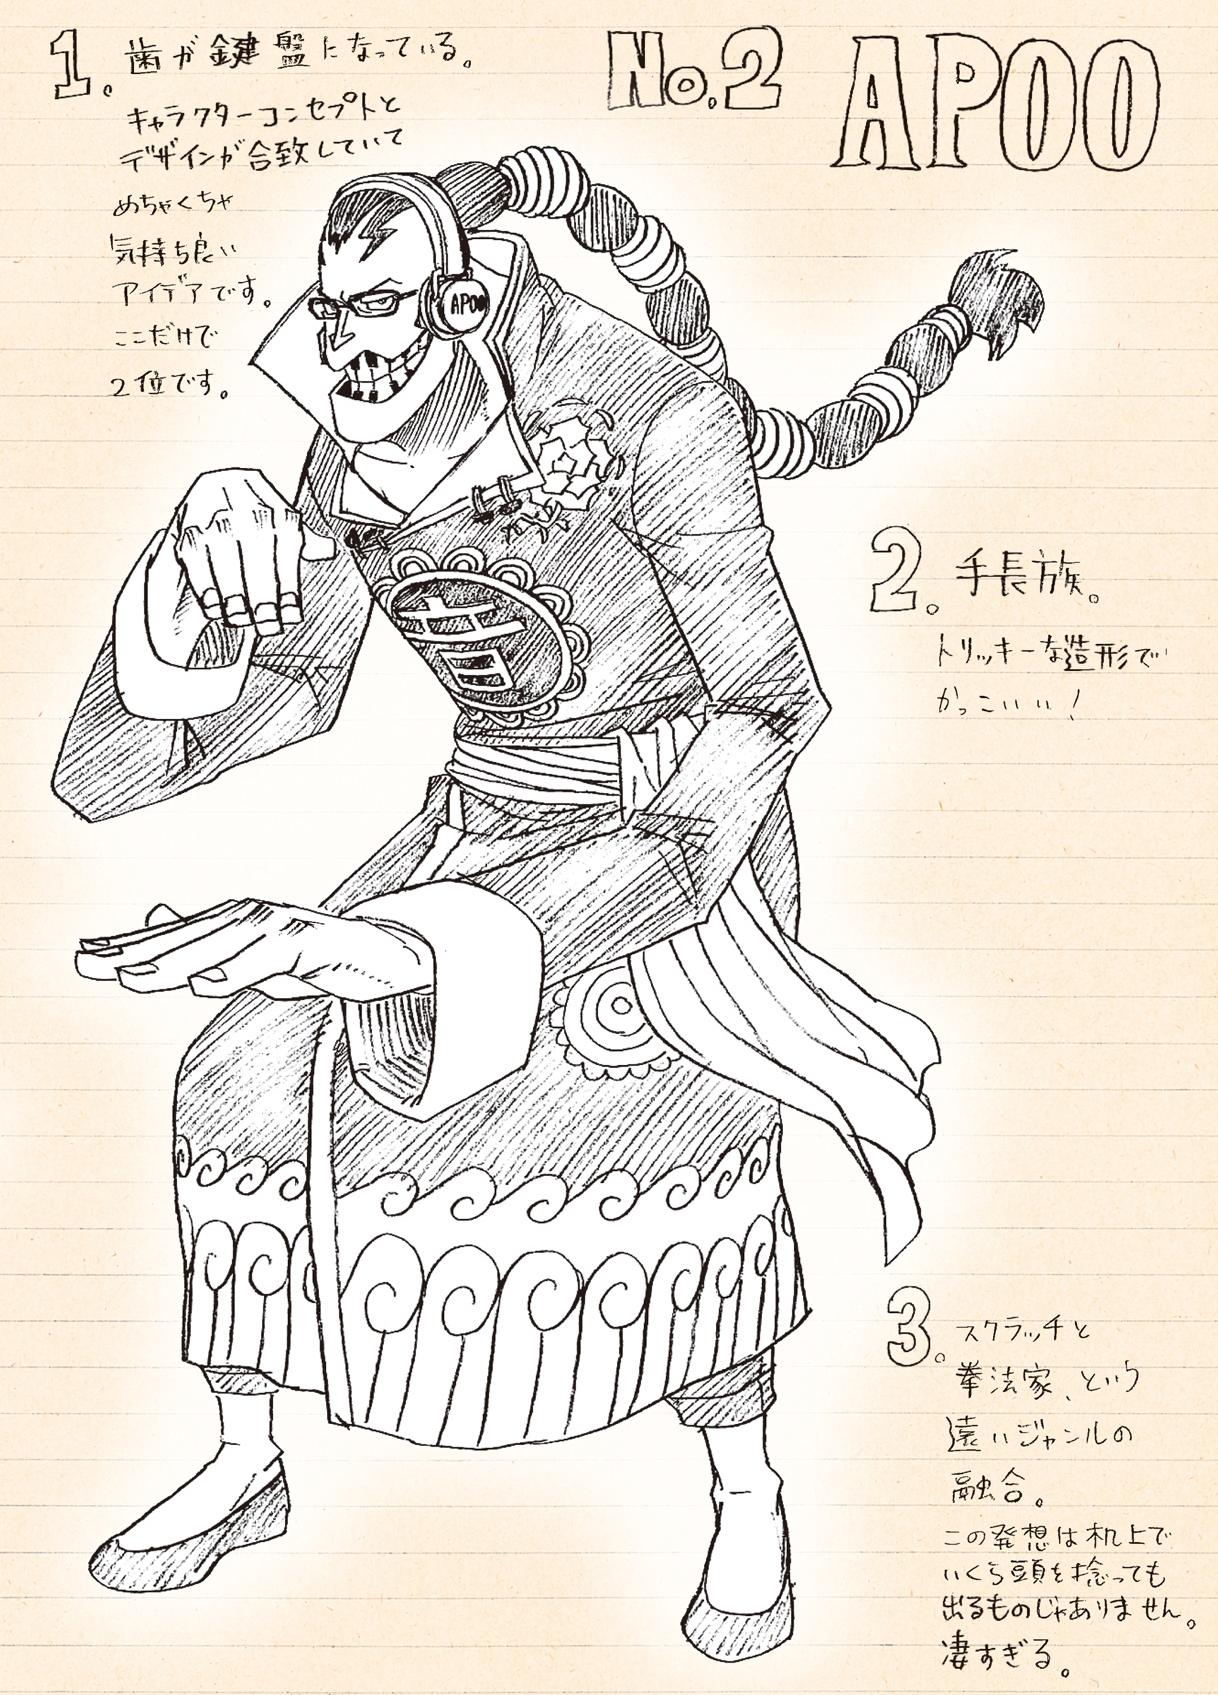 No.2 APOO
1. 歯が鍵盤になっている。
キャラクターコンセプトと
デザインが合致していて
めちゃくちゃ
気持ち良い
アイデアです。
ここだけで
2位です。
APOO
音
2. 手長族。
トリッキーな造形で
かっこいい!
3. スクラッチと
拳法家、という
遠いジャンルの
融合。
この発想は机上で
いくら頭を捻っても
出るものじゃありません。
凄すぎる。